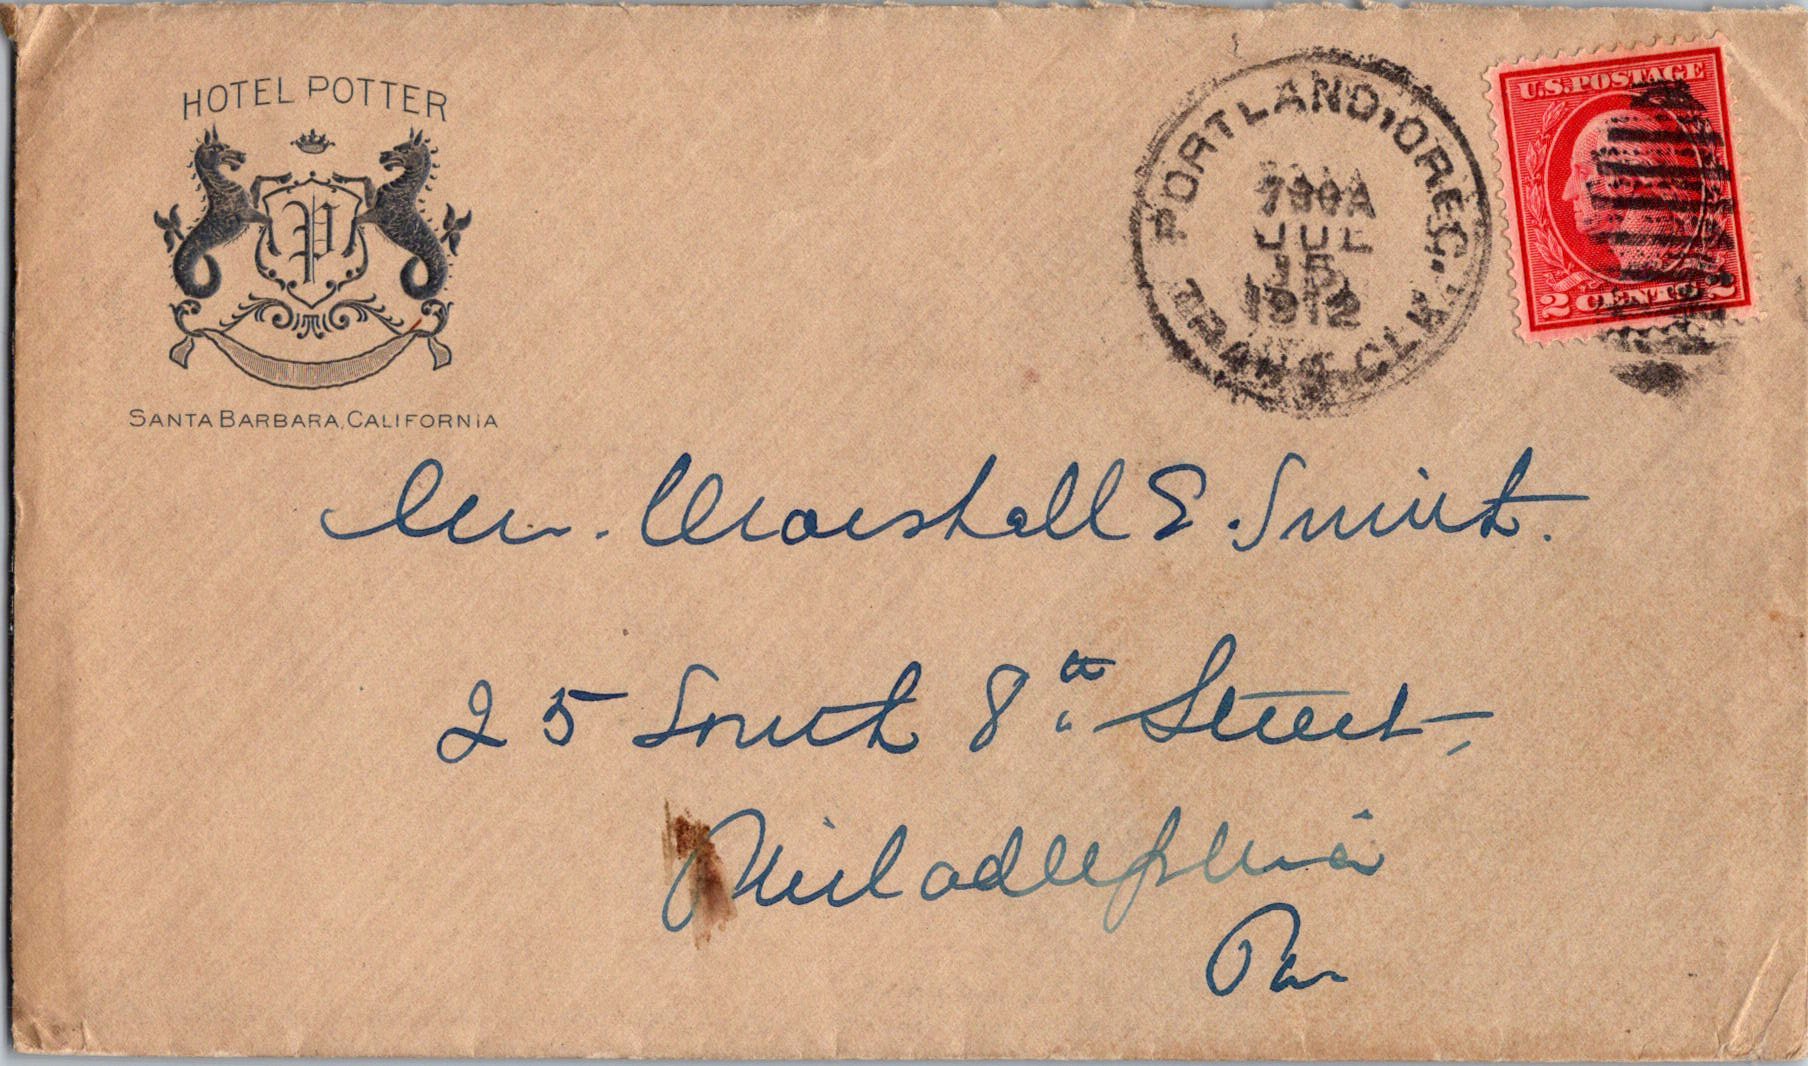 HOTEL POTTER
P
SANTA BARBARA, CALIFORNIA
PORTLAND, OREG.
730A
JUL
15
1912
TRANS. CLK
U.S. POSTAGE
2 CENTS 2
Mr. Marshall E. Smith.
25 South 8th Street,
Philadelphia
Pa